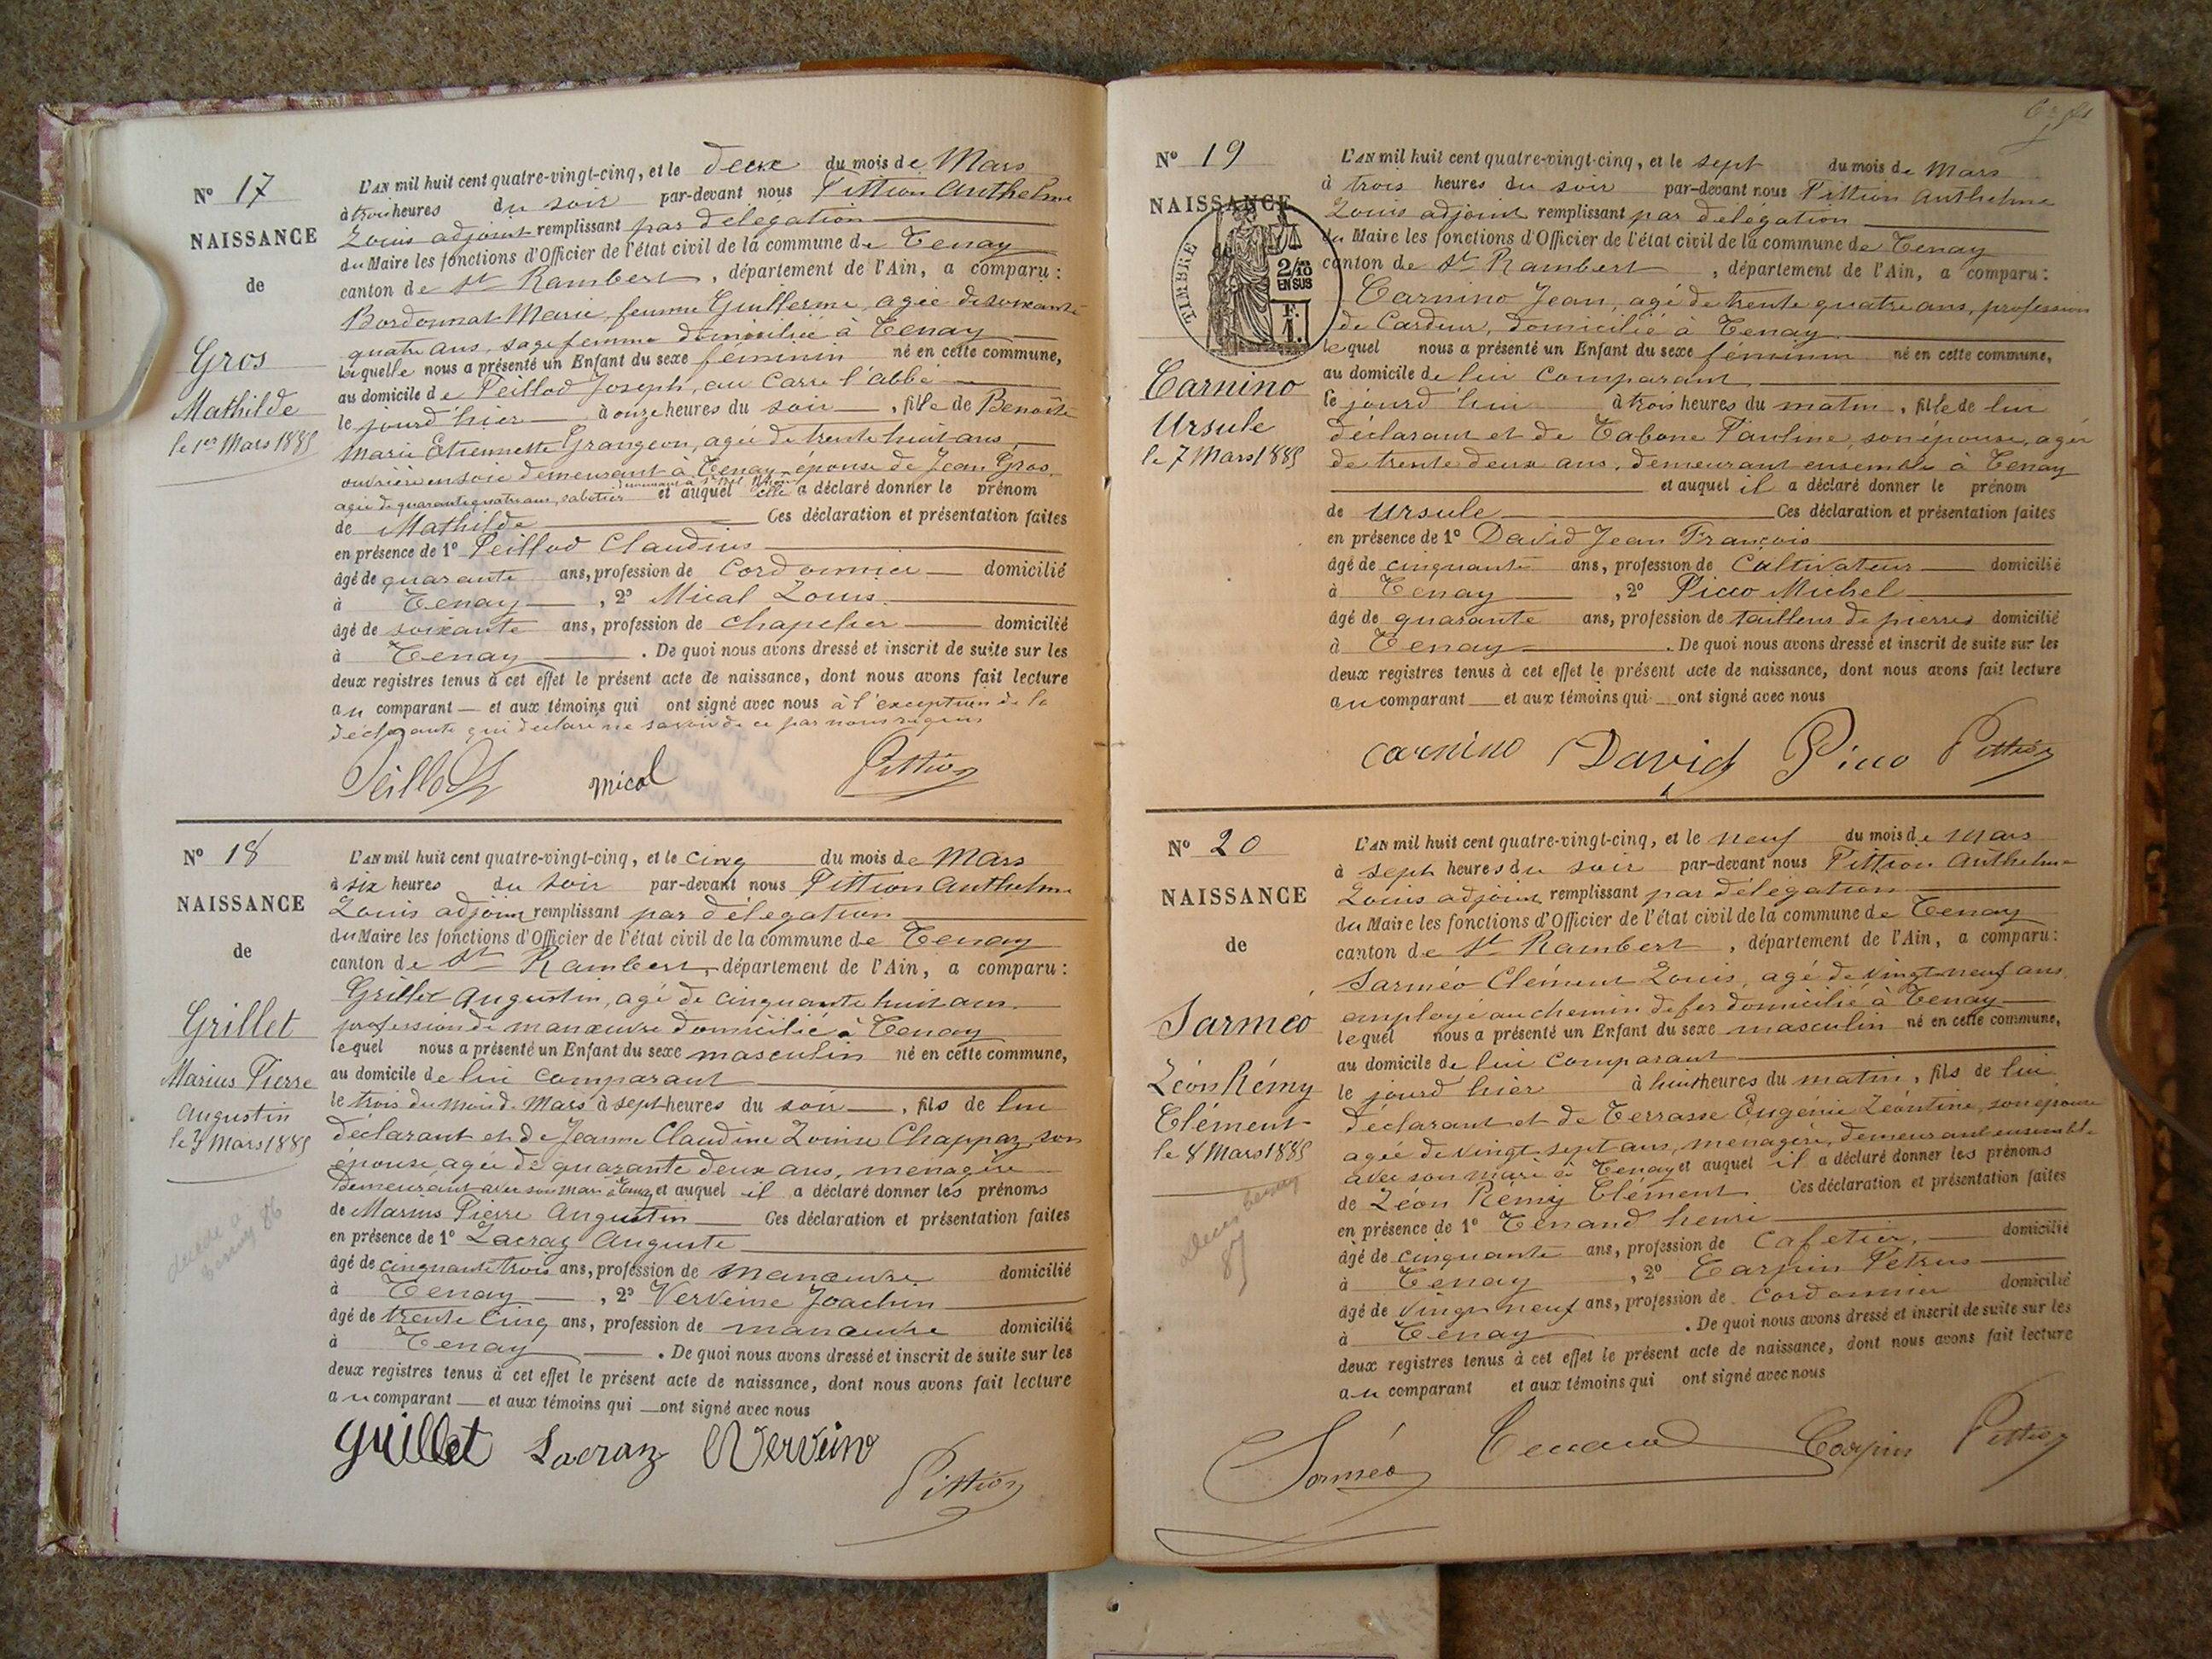 N° 17
NAISSANCE
de
Gros
Mathilde
le 1er Mars 1885
L'AN mil huit cent quatre-vingt-cinq, et le deux du mois de Mars
à trois heures du soir par-devant nous Pittion Anthelme
Louis adjoint remplissant par délégation
du Maire les fonctions d'Officier de l'état civil de la commune de Tenay
canton de St Rambert, département de l'Ain, a comparu :
Bordonnat Marie, femme Guillerme, agée de soixante
quatre ans, sage femme domiciliée à Tenay
laquelle nous a présenté un Enfant du sexe féminin né en cette commune,
au domicile de Peillod Joseph, au Carre l'abbé
le jourd'hier à onze heures du soir, fille de Benoîte
Marie Etiennette Grangeon, agée de trente huit ans,
ouvrière en soie demeurant à Tenay, épouse de Jean Gros
agé de quarante quatre ans, sabotier demeurant à et auquel elle a déclaré donner le prénom
de Mathilde Ces déclaration et présentation faites
en présence de 1° Peillod Claudius
âgé de quarante ans, profession de Cordonnier domicilié
à Tenay, 2° Mical Louis
âgé de soixante ans, profession de chapelier domicilié
à Tenay. De quoi nous avons dressé et inscrit de suite sur les
deux registres tenus à cet effet le présent acte de naissance, dont nous avons fait lecture
au comparant et aux témoins qui ont signé avec nous à l'exception de la
déclarante qui déclare ne savoir de ce par nous requis
Peillod Mical Pittion
N° 18
NAISSANCE
de
Grillet
Marius Pierre
Augustin
le 3 Mars 1885
décédé à
Tenay 86
L'AN mil huit cent quatre-vingt-cinq, et le cinq du mois de Mars
à six heures du soir par-devant nous Pittion Anthelme
Louis adjoint remplissant par délégation
du Maire les fonctions d'Officier de l'état civil de la commune de Tenay
canton de St Rambert, département de l'Ain, a comparu :
Grillet Augustin, agé de cinquante huit ans
profession de manœuvre domicilié à Tenay
lequel nous a présenté un Enfant du sexe masculin né en cette commune,
au domicile de lui comparant
le trois du mois de Mars à sept heures du soir, fils de lui
déclarant et de Jeanne Claudine Louise Chappaz, son
épouse, agée de quarante deux ans, menagère
demeurant avec son mari à Tenay et auquel il a déclaré donner les prénoms
de Marius Pierre Augustin Ces déclaration et présentation faites
en présence de 1° Lacraz Auguste
âgé de cinquante trois ans, profession de manœuvre domicilié
à Tenay, 2° Verveine Joachim
âgé de trente cinq ans, profession de manœuvre domicilié
à Tenay. De quoi nous avons dressé et inscrit de suite sur les
deux registres tenus à cet effet le présent acte de naissance, dont nous avons fait lecture
au comparant et aux témoins qui ont signé avec nous
Grillet Lacraz Pittion
N° 19
NAISSANCE
de
TIMBRE
2/10
EN SUS
F.
1.
Carnino
Ursule
le 7 Mars 1885
L'AN mil huit cent quatre-vingt-cinq, et le sept du mois de Mars
à trois heures du soir par-devant nous Pittion Anthelme
Louis adjoint remplissant par délégation
du Maire les fonctions d'Officier de l'état civil de la commune de Tenay
canton de St Rambert, département de l'Ain, a comparu :
Carnino Jean, agé de trente quatre ans, profession
de Cardeur, domicilié à Tenay
lequel nous a présenté un Enfant du sexe féminin né en cette commune,
au domicile de lui comparant
le jourd'hui à trois heures du matin, fille de lui
déclarant et de Tabone Pauline, son épouse, agée
de trente deux ans, demeurant ensemble à Tenay
et auquel il a déclaré donner le prénom
de Ursule Ces déclaration et présentation faites
en présence de 1° David Jean François
âgé de cinquante ans, profession de Cultivateur domicilié
à Tenay, 2° Picco Michel
âgé de quarante ans, profession de tailleur de pierres domicilié
à Tenay. De quoi nous avons dressé et inscrit de suite sur les
deux registres tenus à cet effet le présent acte de naissance, dont nous avons fait lecture
au comparant et aux témoins qui ont signé avec nous
Carnino David Picco Pittion
N° 20
NAISSANCE
de
Sarméo
Léon Rémy
Clément
le 8 Mars 1885
Tenay
87
L'AN mil huit cent quatre-vingt-cinq, et le neuf du mois de Mars
à sept heures du soir par-devant nous Pittion Anthelme
Louis adjoint remplissant par délégation
du Maire les fonctions d'Officier de l'état civil de la commune de Tenay
canton de St Rambert, département de l'Ain, a comparu :
Sarméo Clément Louis, agé de vingt neuf ans
employé au chemin de fer domicilié à Tenay
lequel nous a présenté un Enfant du sexe masculin né en cette commune,
au domicile de lui comparant
le jourd'hier à huit heures du matin, fils de lui
déclarant et de Terrasse Eugénie Léontine, son épouse
agée de vingt sept ans, menagère, demeurant ensemble
avec son mari à Tenay et auquel il a déclaré donner les prénoms
de Léon Remy Clément Ces déclaration et présentation faites
en présence de 1° Tenand henri
âgé de cinquante ans, profession de Cafetier, domicilié
à Tenay, 2° Carpin Petrus
âgé de vingt neuf ans, profession de Cordonnier domicilié
à Tenay. De quoi nous avons dressé et inscrit de suite sur les
deux registres tenus à cet effet le présent acte de naissance, dont nous avons fait lecture
au comparant et aux témoins qui ont signé avec nous
Sarméo Tenand Carpin Pittion